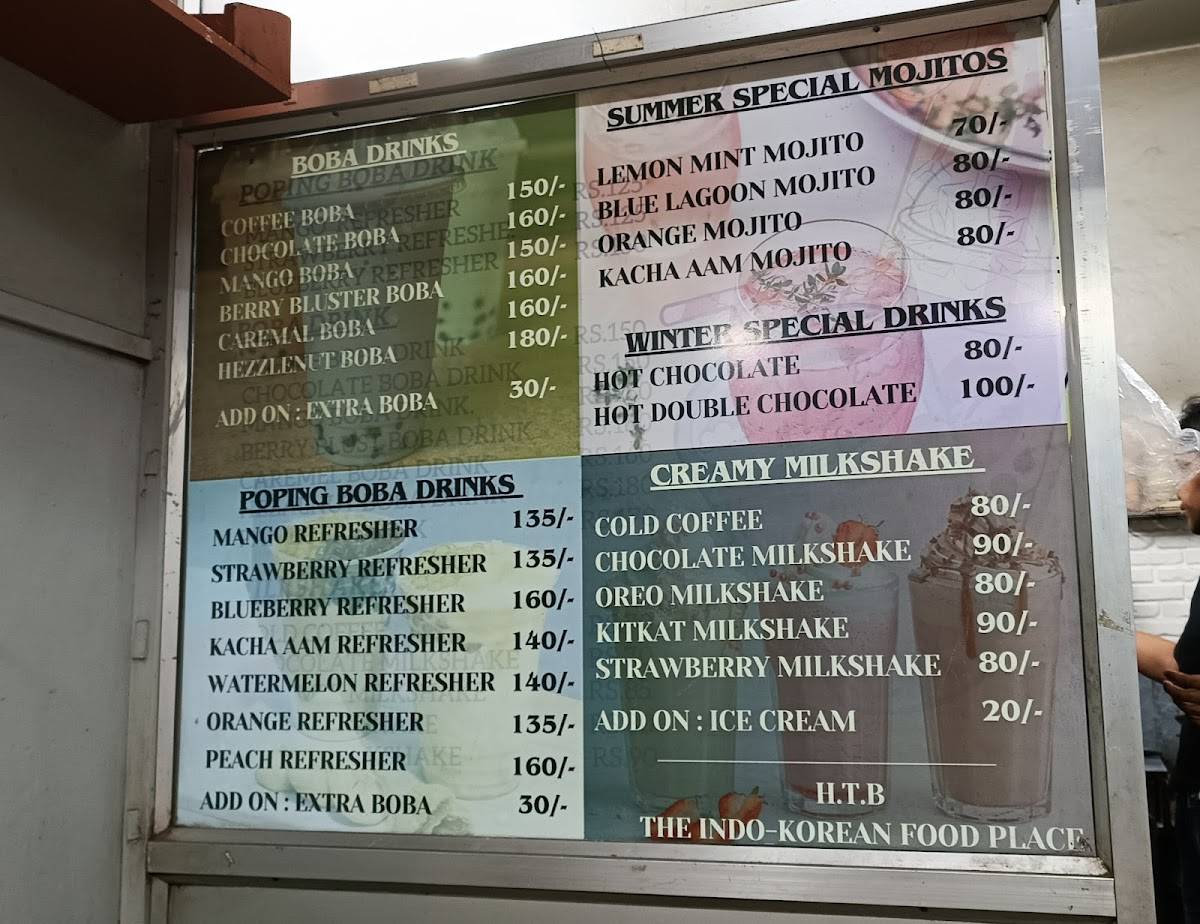 BOBA DRINKS
POPING BOBA DRINK
COFFEE BOBA 150/-
CHOCOLATE BOBA 160/-
MANGO BOBA 150/-
BERRY BLUSTER BOBA 160/-
CAREMAL BOBA 160/-
HEZZLENUT BOBA 180/-
ADD ON : EXTRA BOBA 30/-
POPING BOBA DRINKS
MANGO REFRESHER 135/-
STRAWBERRY REFRESHER 135/-
BLUEBERRY REFRESHER 160/-
KACHA AAM REFRESHER 140/-
WATERMELON REFRESHER 140/-
ORANGE REFRESHER 135/-
PEACH REFRESHER 160/-
ADD ON : EXTRA BOBA 30/-
SUMMER SPECIAL MOJITOS
LEMON MINT MOJITO 70/-
BLUE LAGOON MOJITO 80/-
ORANGE MOJITO 80/-
KACHA AAM MOJITO 80/-
WINTER SPECIAL DRINKS
HOT CHOCOLATE 80/-
HOT DOUBLE CHOCOLATE 100/-
CREAMY MILKSHAKE
COLD COFFEE 80/-
CHOCOLATE MILKSHAKE 90/-
OREO MILKSHAKE 80/-
KITKAT MILKSHAKE 90/-
STRAWBERRY MILKSHAKE 80/-
ADD ON : ICE CREAM 20/-
H.T.B
THE INDO-KOREAN FOOD PLACE